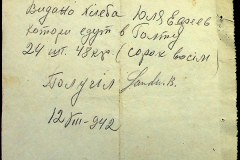 Видано Хлеба Юля Евреев
которы едут в Голту
24 шт. 48 кгр (сорок восім)
Получіл Sandu B.
12 VIII-942